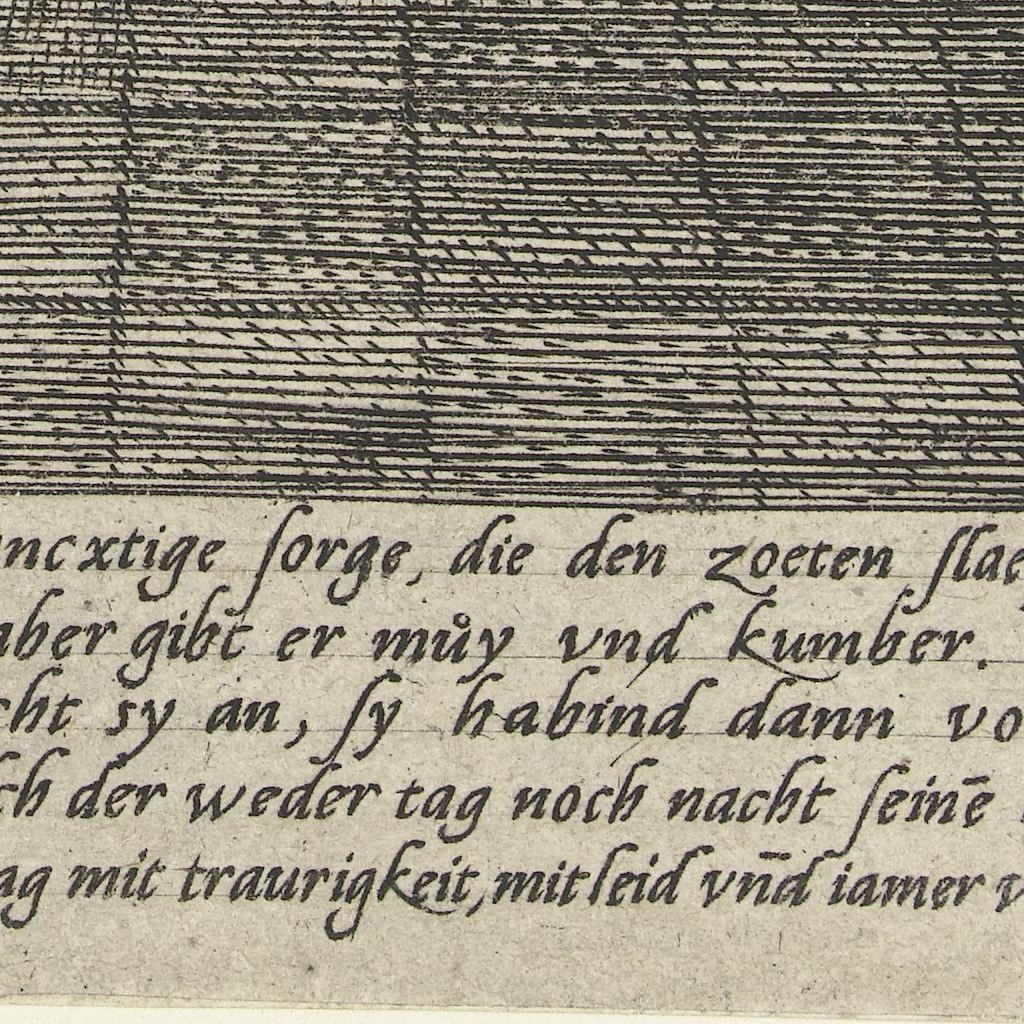 ncxtige ſorge, die den zoeten ſlae
aber gibt er mům̊y vnd kumber.
cht sy an, ſy habind dann vo
ch der weder tag noch nacht ſeinē
ag mit traurigkeit, mitleid vn̄d iamer v